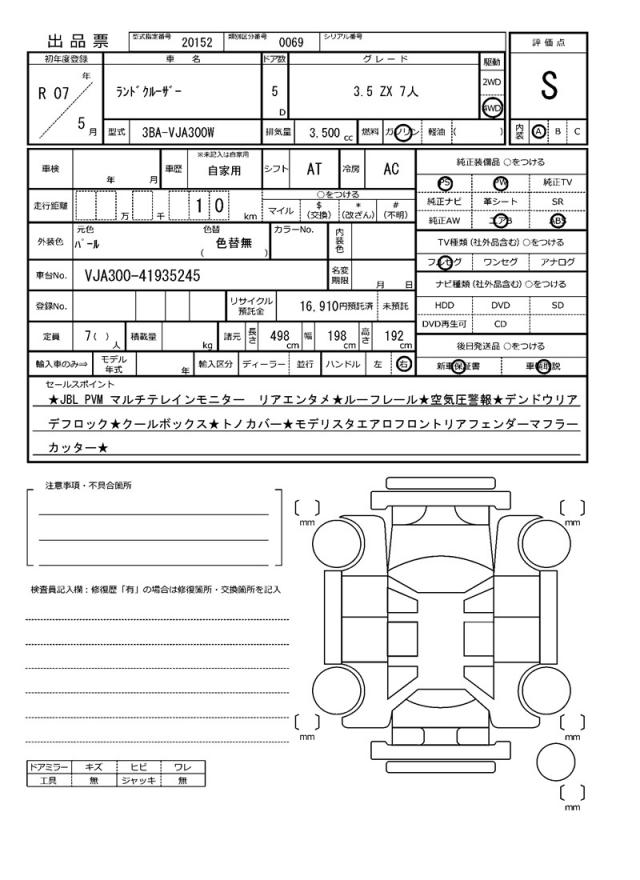 出 品 票
型式指定番号 20152 類別区分番号 0069 シリアル番号
評 価 点
S
初年度登録 車 名 ドア数 グレード 駆動
R 07 年 5 月
ﾗﾝﾄﾞｸﾙｰｻﾞｰ 5 D 3.5 ZX 7人
2WD
4WD
型式 3BA-VJA300W 排気量 3,500 cc 燃料 ガソリン 軽油 ( )
内装 A B C
車検 年 月 車歴 ※未記入は自家用 自家用 シフト AT 冷房 AC
走行距離 万 千 1 0 km
○をつける
マイル $ (交換) * (改ざん) # (不明)
外装色 元色 ﾊﾟｰﾙ 色替 色替無 ( ) カラーNo. 内装色
車台No. VJA300-41935245 名変期限 月 日
登録No. リサイクル預託金 16,910円預託済 未預託
定員 7( ) 人 積載量 kg 諸元 長さ 498 cm 幅 198 cm 高さ 192 cm
輸入車のみ⇒ モデル年式 年 輸入区分 ディーラー 並行 ハンドル 左 右
純正装備品 ○をつける
PS PW 純正TV
純正ナビ 革シート SR
純正AW エアB ABS
TV種類 (社外品含む) ○をつける
フルセグ ワンセグ アナログ
ナビ種類 (社外品含む) ○をつける
HDD DVD SD
DVD再生可 CD
後日発送品 ○をつける
新車保証書 車輌取説
セールスポイント
★JBL PVM マルチテレインモニター リアエンタメ★ルーフレール★空気圧警報★デンドウリア
デフロック★クールボックス★トノカバー★モデリスタエアロフロントリアフェンダーマフラー
カッター★
注意事項・不具合箇所
検査員記入欄：修復歴「有」の場合は修復箇所・交換箇所を記入
mm
mm
mm
mm
mm
ドアミラー キズ ヒビ ワレ
工具 無 ジャッキ 無